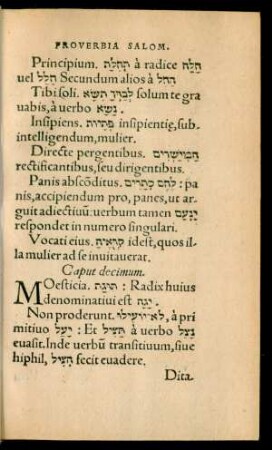 PROVERBIA SALOM.
Principium. תְּחִלַּת à radice חָלָה
uel חָלַל Secundum alios à הֵחֵל
Tibi soli. לְבַדְּךָ תִּשָּׂא solum te gra
uabis, à uerbo נָשָׂא.
Insipiens. פְּתַיּוּת insipientię, sub-
intelligendum, mulier.
Directe pergentibus. הַמְיַשְּׁרִים
rectificantibus, seu dirigentibus.
Panis abscōditus. לֶחֶם סְתָרִים: pa
nis, accipiendum pro, panes, ut ar
guit adiectiuū: uerbum tamen יִנְעָם
respondet in numero singulari.
Vocati eius. קְרֻאֶיהָ idest, quos il-
la mulier ad se inuitauerat.
Caput decimum.
MOesticia. תּוּגַת: Radix huius
denominatiui est יָגָה.
Non proderunt. לֹא־יוֹעִילוּ, à pri
mitiuo יָעַל: Et תַּצִּיל à uerbo נָצַל
euasit. Inde uerbū transitiuum, siue
hiphil, הִצִּיל fecit euadere.
Dita